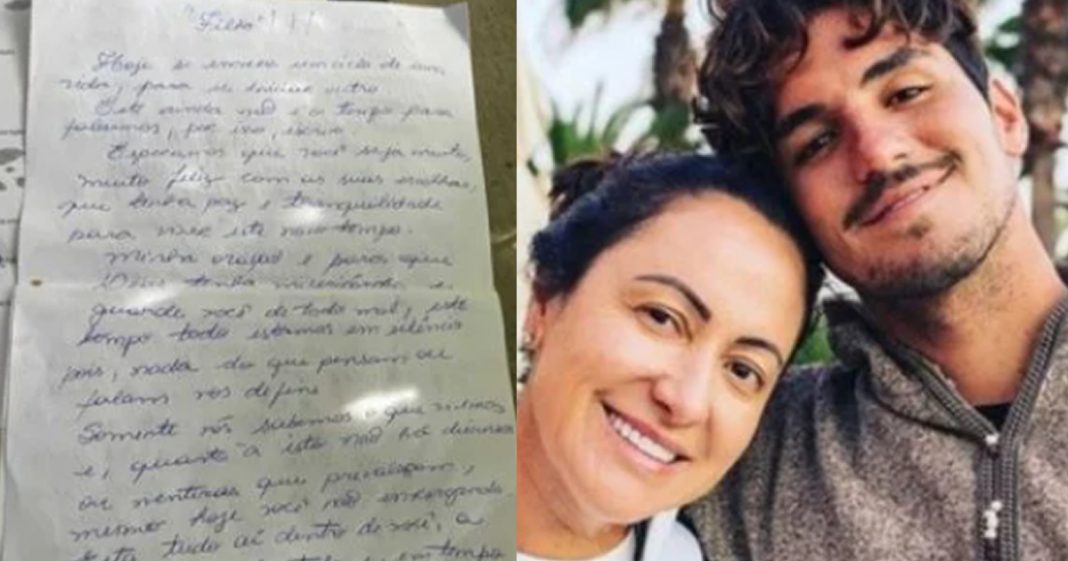 "Filho"
Hoje se encerra um ciclo de uma
vida, para se iniciar outro
Este ainda não é o tempo para
falarmos, por isso, escrevo
Esperamos que você seja muito,
muito feliz com as suas escolhas,
que tenha paz e tranquilidade
para viver este novo tempo.
Minha oração é para que
Deus tenha misericórdia e
guarde você de todo mal, este
tempo todo estamos em silêncio
pois, nada do que pensam ou
falam nos define
Somente nós sabemos o que vivemos
e, quanto à isto não há discurso
ou mentiras que prevaleçam,
mesmo hoje você não enxergando.
está tudo aí dentro de você, a
tempo